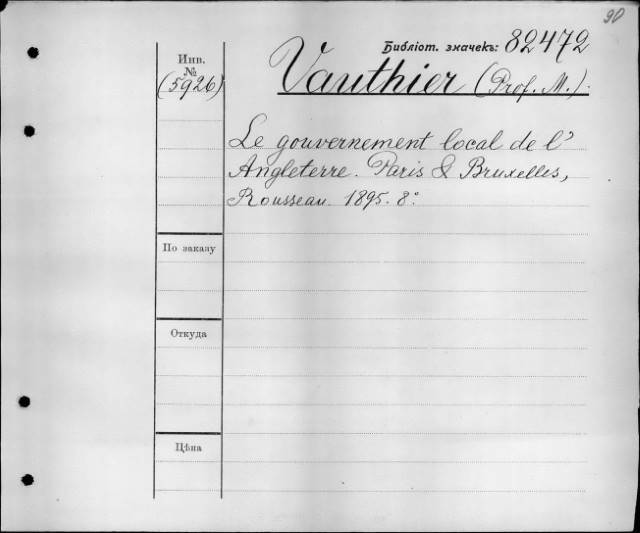 90
Библіот. значекъ: 82472
Инв.
№
(5926)
Vauthier (Prof. M.).
Le gouvernement local de l'
Angleterre. Paris & Bruxelles,
Rousseau. 1895. 8°.
По заказу
Откуда
Цѣна